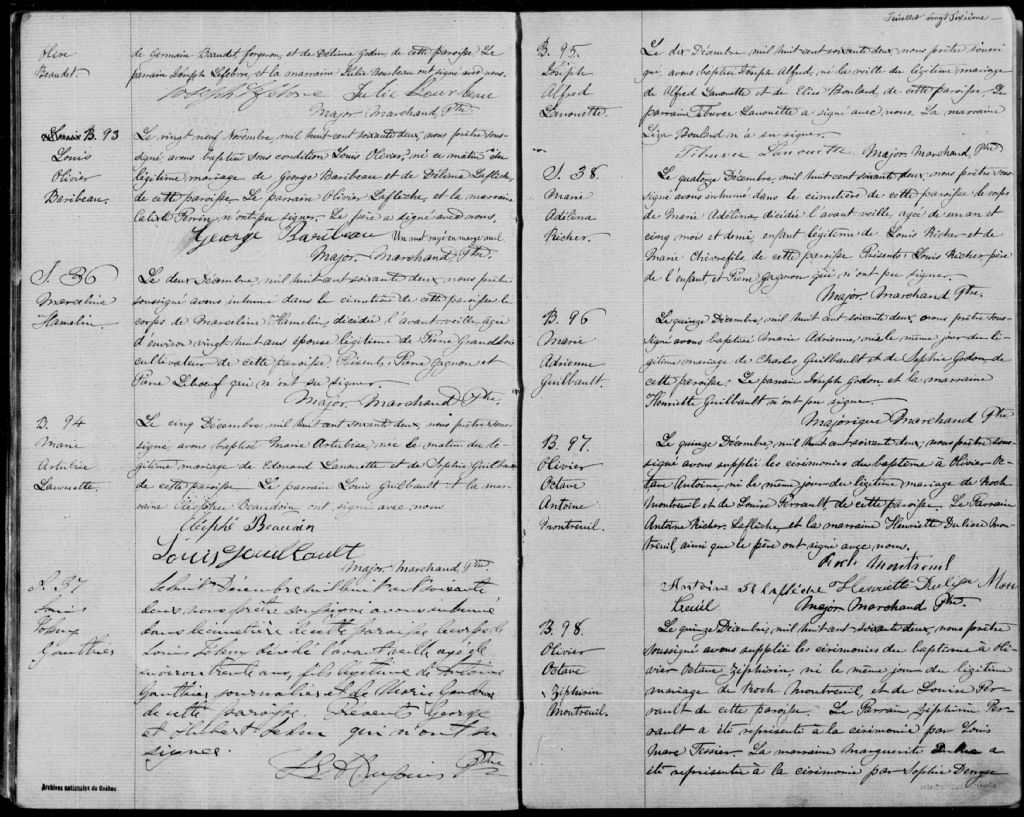 Olive
Beaudet.
de Germain Beaudet, forgeron, et de Délima Godon de cette paroisse. Le
parrain Joseph Lefebvre, et la marraine Julie Bourbeau ont signé avec nous.
Joseph Lefebvre Julie Bourbeau
Major. Marchand Ptre.
B. 93
Louis
Olivier
Baribeau.
Le vingt neuf Novembre, mil huit cent soixante deux, nous prêtre sous-
signé avons baptisé sous condition Louis Olivier, né ce matin du
légitime mariage de George Baribeau et de Délima Laflèche,
de cette paroisse. Le parrain Olivier Laflèche, et la marraine
Calixte Perrin, n'ont pu signer. Le père a signé avec nous.
George Baribeau Un mot rayé en marge nul.
Major. Marchand Ptre.
S. 36
Marceline
Hamelin.
Le deux Décembre, mil huit cent soixante deux, nous prêtre
soussigné avons inhumé dans le cimetière de cette paroisse le
corps de Marceline Hamelin, décédée l'avant-veille, agée
d'environ vingt-huit ans épouse légitime de Pierre Grandbois
cultivateur de cette paroisse. Présents, Pierre Gagnon et
Pierre Leboeuf qui n'ont su signer.
Major. Marchand Ptre.
B. 94
Marie
Artubise
Lanouette.
Le cinq Décembre, mil huit cent soixante deux, nous prêtre sous-
signé avons baptisé Marie Artubise, née le matin du lé-
gitime mariage de Edouard Lanouette et de Sophie Guilbault
de cette paroisse. Le parrain Louis Guilbault et la mar-
raine Cléophée Beaudoin ont signé avec nous
Cléophé Beaudoin
Louis Guilbault
Major. Marchand Ptre.
S. 37
Louis
Gauthier
Le huit Décembre mil huit cent soixante
deux, nous prêtre soussigné avons inhumé
dans le cimetière de cette paroisse le corps de
Louis décédé l'avant veille, agé de
environ trente ans, fils légitime de Antoine
Gauthier journalier et de Marie
de cette paroisse. Présents George
et Hubert qui n'ont su
signer.
Ptre
Archives nationales du Québec
Feuillet vingt sixième
B. 95.
Joseph
Alfred
Lanouette.
Le dix Décembre, mil huit cent soixante deux, nous prêtre soussi-
gné, avons baptisé Joseph Alfred, né la veille du légitime mariage
de Alfred Lanouette et de Elise Bouland, de cette paroisse. Le
parrain Tiburce Lanouette a signé avec nous. La marraine
Liza Bouland n'a su signer.
Tiburce Lanouette Major. Marchand, Ptre
S. 38.
Marie
Adélina
Richer.
Le quatorze Décembre, mil huit cent soixante deux, nous prêtre sous-
signé avons inhumé dans le cimetière de cette paroisse le corps
de Marie Adélina, décédée l'avant veille, agée de un an et
cinq mois et demi, enfant légitime de Louis Richer et de
Marie Chèvrefils de cette paroisse. Présents: Louis Richer père
de l'enfant, et Pierre Gagnon qui n'ont pu signer.
Major. Marchand Ptre.
B. 96
Marie
Adrienne
Guilbault.
Le quinze Décembre, mil huit cent soixante deux, nous prêtre sous-
signé avons baptisé Marie Adrienne, née le même jour du lé-
gitime mariage de Charles Guilbault et de Sophie Godon de
cette paroisse. Le parrain Joseph Godon, et la marraine
Henriette Guilbault n'ont pu signer.
Majorique Marchand Ptre
B. 97.
Olivier
Octave
Antoine
Montreuil.
Le quinze Décembre, mil huit cent soixante deux, nous prêtre sous-
signé avons suppléé les cérémonies du baptême à Olivier Oc-
tave Antoine, né le même jour du légitime mariage de Roch
Montreuil et de Louise Perrault, de cette paroisse. Le Parrain
Antoine Richer Laflèche, et la marraine Henriette Dulisse Mon-
treuil, ainsi que le père ont signé avec nous.
Roch Montreuil
Antoine R Laflèche Henriette Dulisse Mon
treuil Major Marchand Ptre.
B. 98.
Olivier
Octave
Zéphirin
Montreuil.
Le quinze Décembre, mil huit cent soixante deux, nous prêtre
soussigné avons suppléé les cérémonies du baptême à Oli-
vier Octave Zéphirin, né le même jour du légitime
mariage de Roch Montreuil, et de Louise Per-
rault de cette paroisse. Le Parrain Zéphirin Per-
rault a été représenté à la cérémonie par Louis
Marc Tessier. La marraine Marguerite a
été représentée à la cérémonie par Sophie